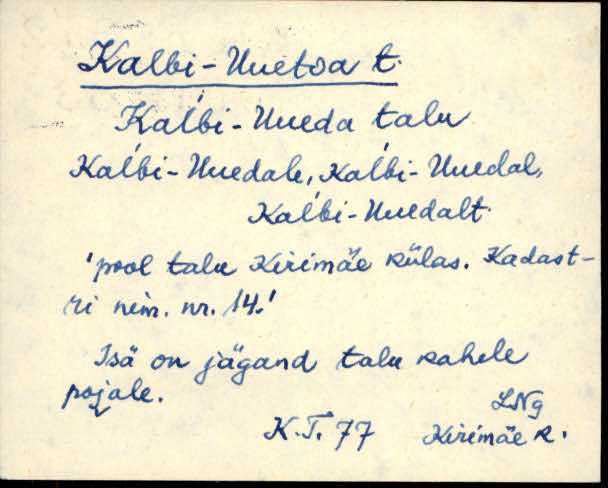 Kalbi-Uuetoa t.
Kaĺbi-Uueda talu
Kaĺbi-Uuedale, Kaĺbi-Uuedal,
Kaĺbi-Uuedalt.
'pool talu Kirimäe külas. Kadast-
ri nim. nr. 14.'
Isä on jägand talu kahele
pojale.
LNg
K.T. 77 Kirimäe k.